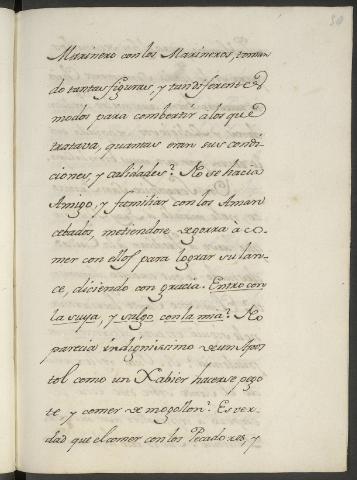 50
Marinero con los Marineros, toman
do tantas figuras, y tan diferentes
modos para combertir a los que
tratava, quantas eran sus condi
ciones, y calidades? No se hacia
Amigo, y familiar con los Aman
cebados, metiendose de gorra à co
mer con ellos para lograr su lan-
ce, diciendo con gracia. Entro con
la suya, y salgo con la mia? No
parecia indignissimo de un Apos
tol como un Xabier hacerse pego
te, y comer de mogollon? Es ver-
dad que el comer con los Pecadores, y